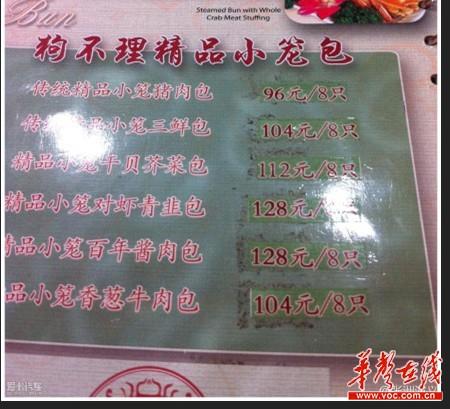 Bun
Steamed Bun with Whole
Crab Meat Stuffing
狗不理精品小笼包
传统精品小笼猪肉包 96元/8只
传统精品小笼三鲜包 104元/8只
精品小笼干贝芥菜包 112元/8只
精品小笼对虾青韭包 128元/8只
精品小笼百年酱肉包 128元/8只
品小笼香葱牛肉包 104元/8只
爱卡汽车
华声在线
www.voc.com.cn